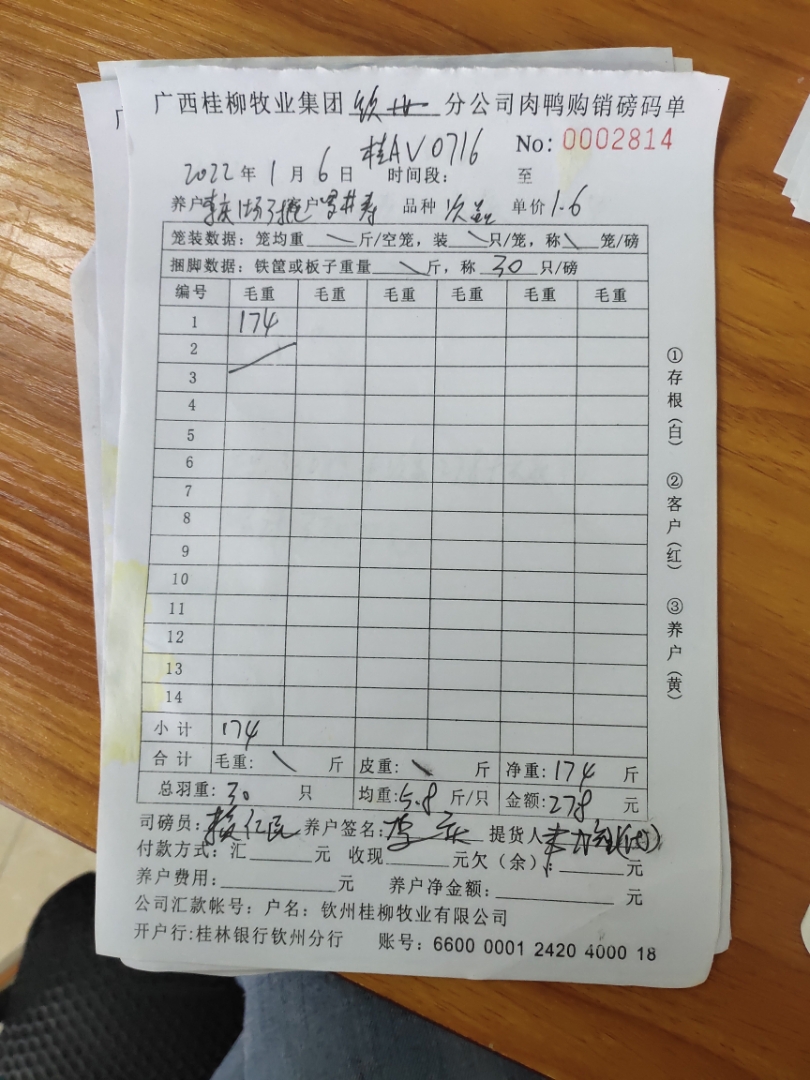 广西桂柳牧业集团 钦州 分公司肉鸭购销磅码单
桂AV0716 No: 0002814
2022 年 1 月 6 日 时间段: 至
养户 户 品种 次品 单价 1.6
笼装数据: 笼均重 \ 斤/空笼, 装 \ 只/笼, 称 \ 笼/磅
捆脚数据: 铁筐或板子重量 \ 斤, 称 30 只/磅
编号 毛重 毛重 毛重 毛重 毛重 毛重
1 174
2
3
4
5
6
7
8
9
10
11
12
13
14
小计 174
合计 毛重: \ 斤 皮重: \ 斤 净重: 174 斤
总羽重: 30 只 均重: 5.8 斤/只 金额: 278 元
司磅员: 养户签名: 李庆 提货人
付款方式: 汇 元 收现 元欠(余): 元
养户费用: 元 养户净金额: 元
公司汇款帐号: 户名: 钦州桂柳牧业有限公司
开户行:桂林银行钦州分行 账号: 6600 0001 2420 4000 18
①存根(白) ②客户(红) ③养户(黄)